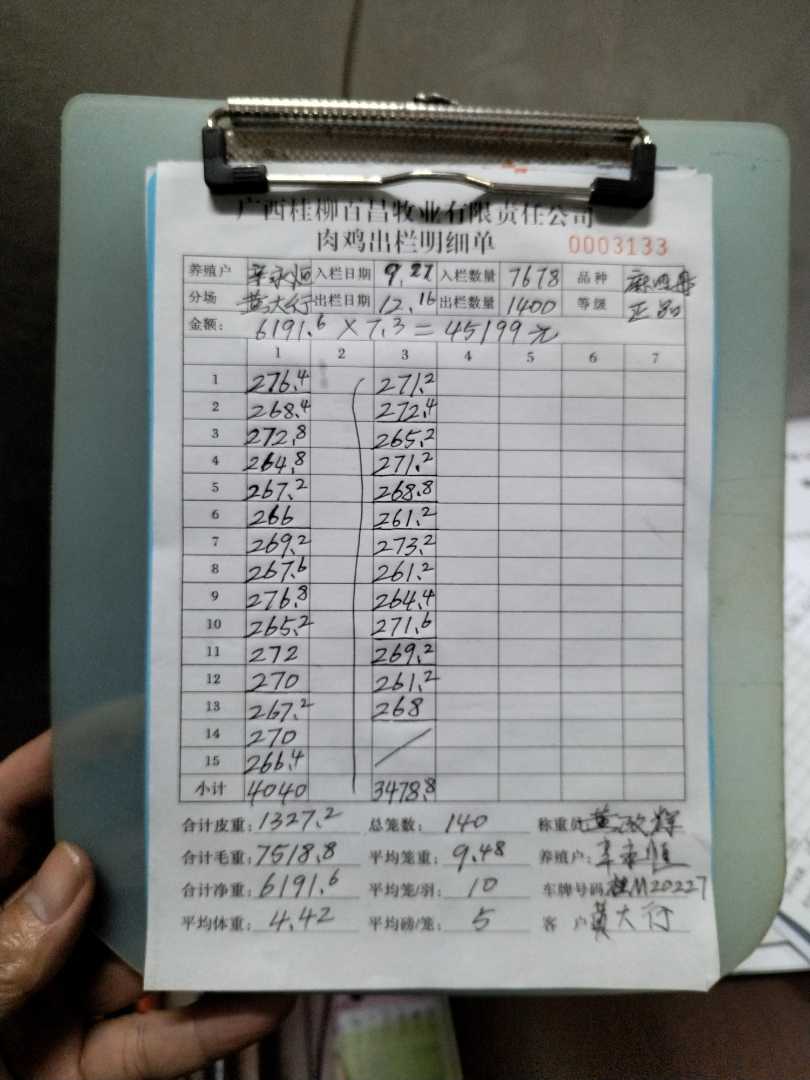 广西桂柳百昌牧业有限责任公司
肉鸡出栏明细单 0003133
养殖户 辛永恒 入栏日期 9.27 入栏数量 7678 品种
分场 黄大行 出栏日期 12.16 出栏数量 1400 等级 正品
金额: 6191.6 × 7.3 = 45199元
1 2 3 4 5 6 7
1 276.4 271.2
2 268.4 272.4
3 272.8 265.2
4 264.8 271.2
5 267.2 268.8
6 266 261.2
7 269.2 273.2
8 267.6 261.2
9 276.8 264.4
10 265.2 271.6
11 272 269.2
12 270 261.2
13 267.2 268
14 270
15 266.4
小计 4040 3478.8
合计皮重: 1327.2 总笼数: 140 称重员
合计毛重: 7518.8 平均笼重: 9.48 养殖户: 辛永恒
合计净重: 6191.6 平均笼/羽: 10 车牌号码 桂M20227
平均体重: 4.42 平均磅/笼: 5 客户 黄大行